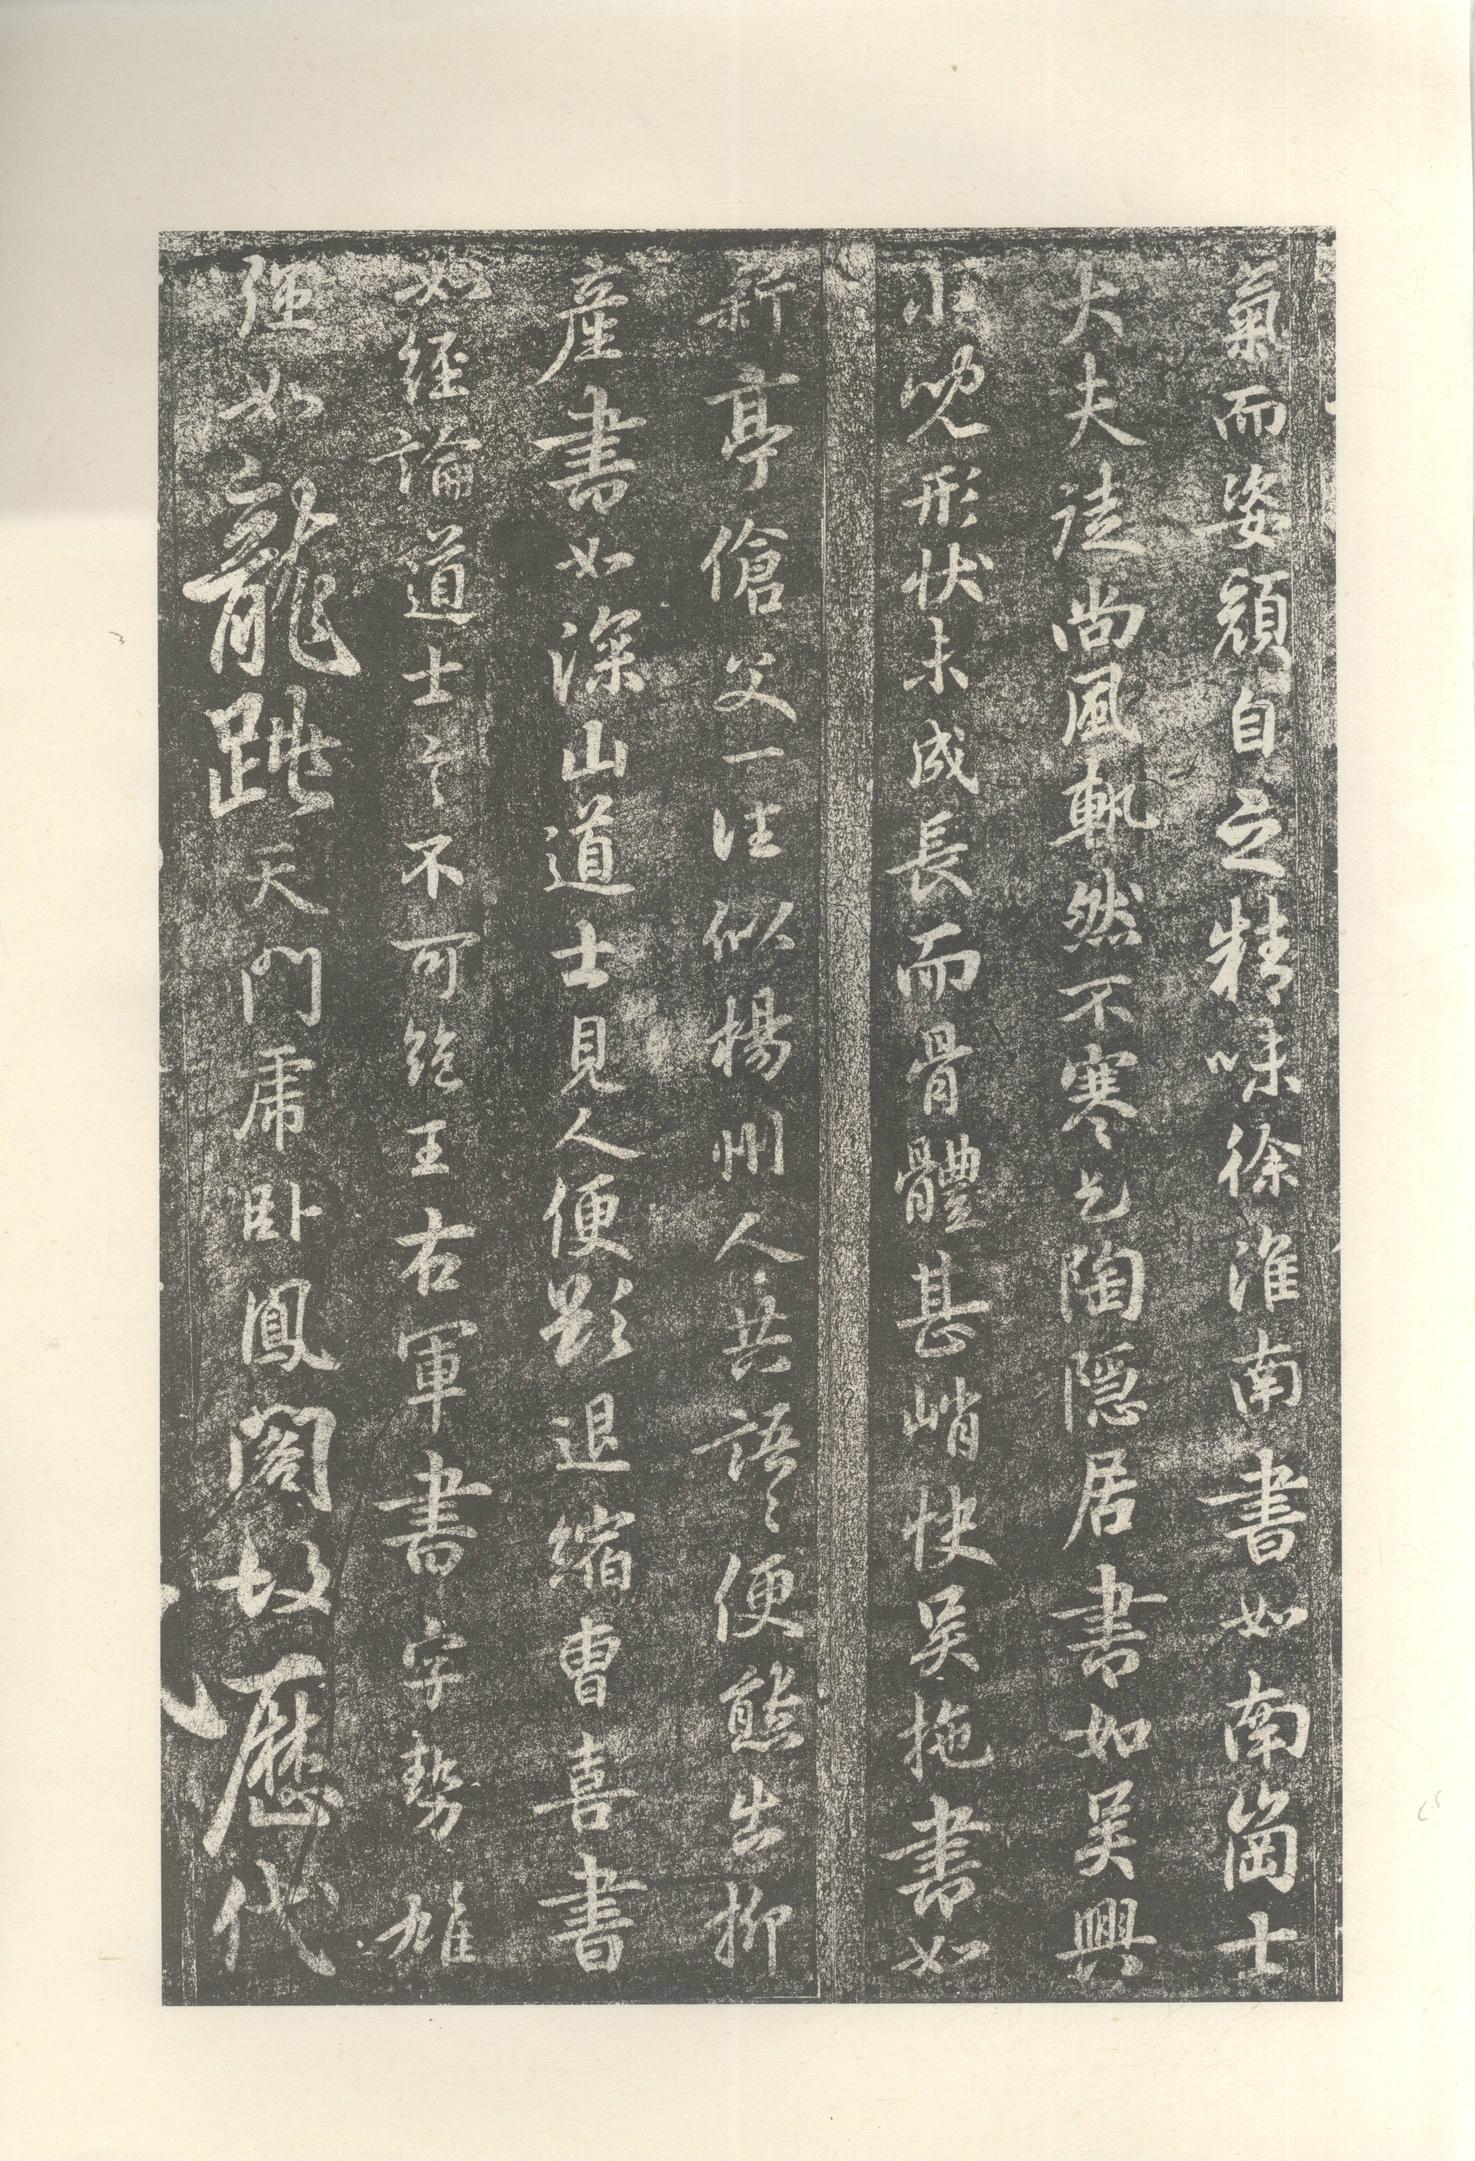 氣而姿顔自乏精味徐淮南書如南崗士
大夫徒尚風軌然不寒乞陶隱居書如吴興
小兒形狀未成長而骨體甚峭快吴拖書如
新亭傖父一往似楊州人共語〻便態出柳
産書如深山道士見人便欲退縮曹喜書
如經論道士言不可絶王右軍書字勢雄
强如龍跳天門虎卧鳳閣故歷代